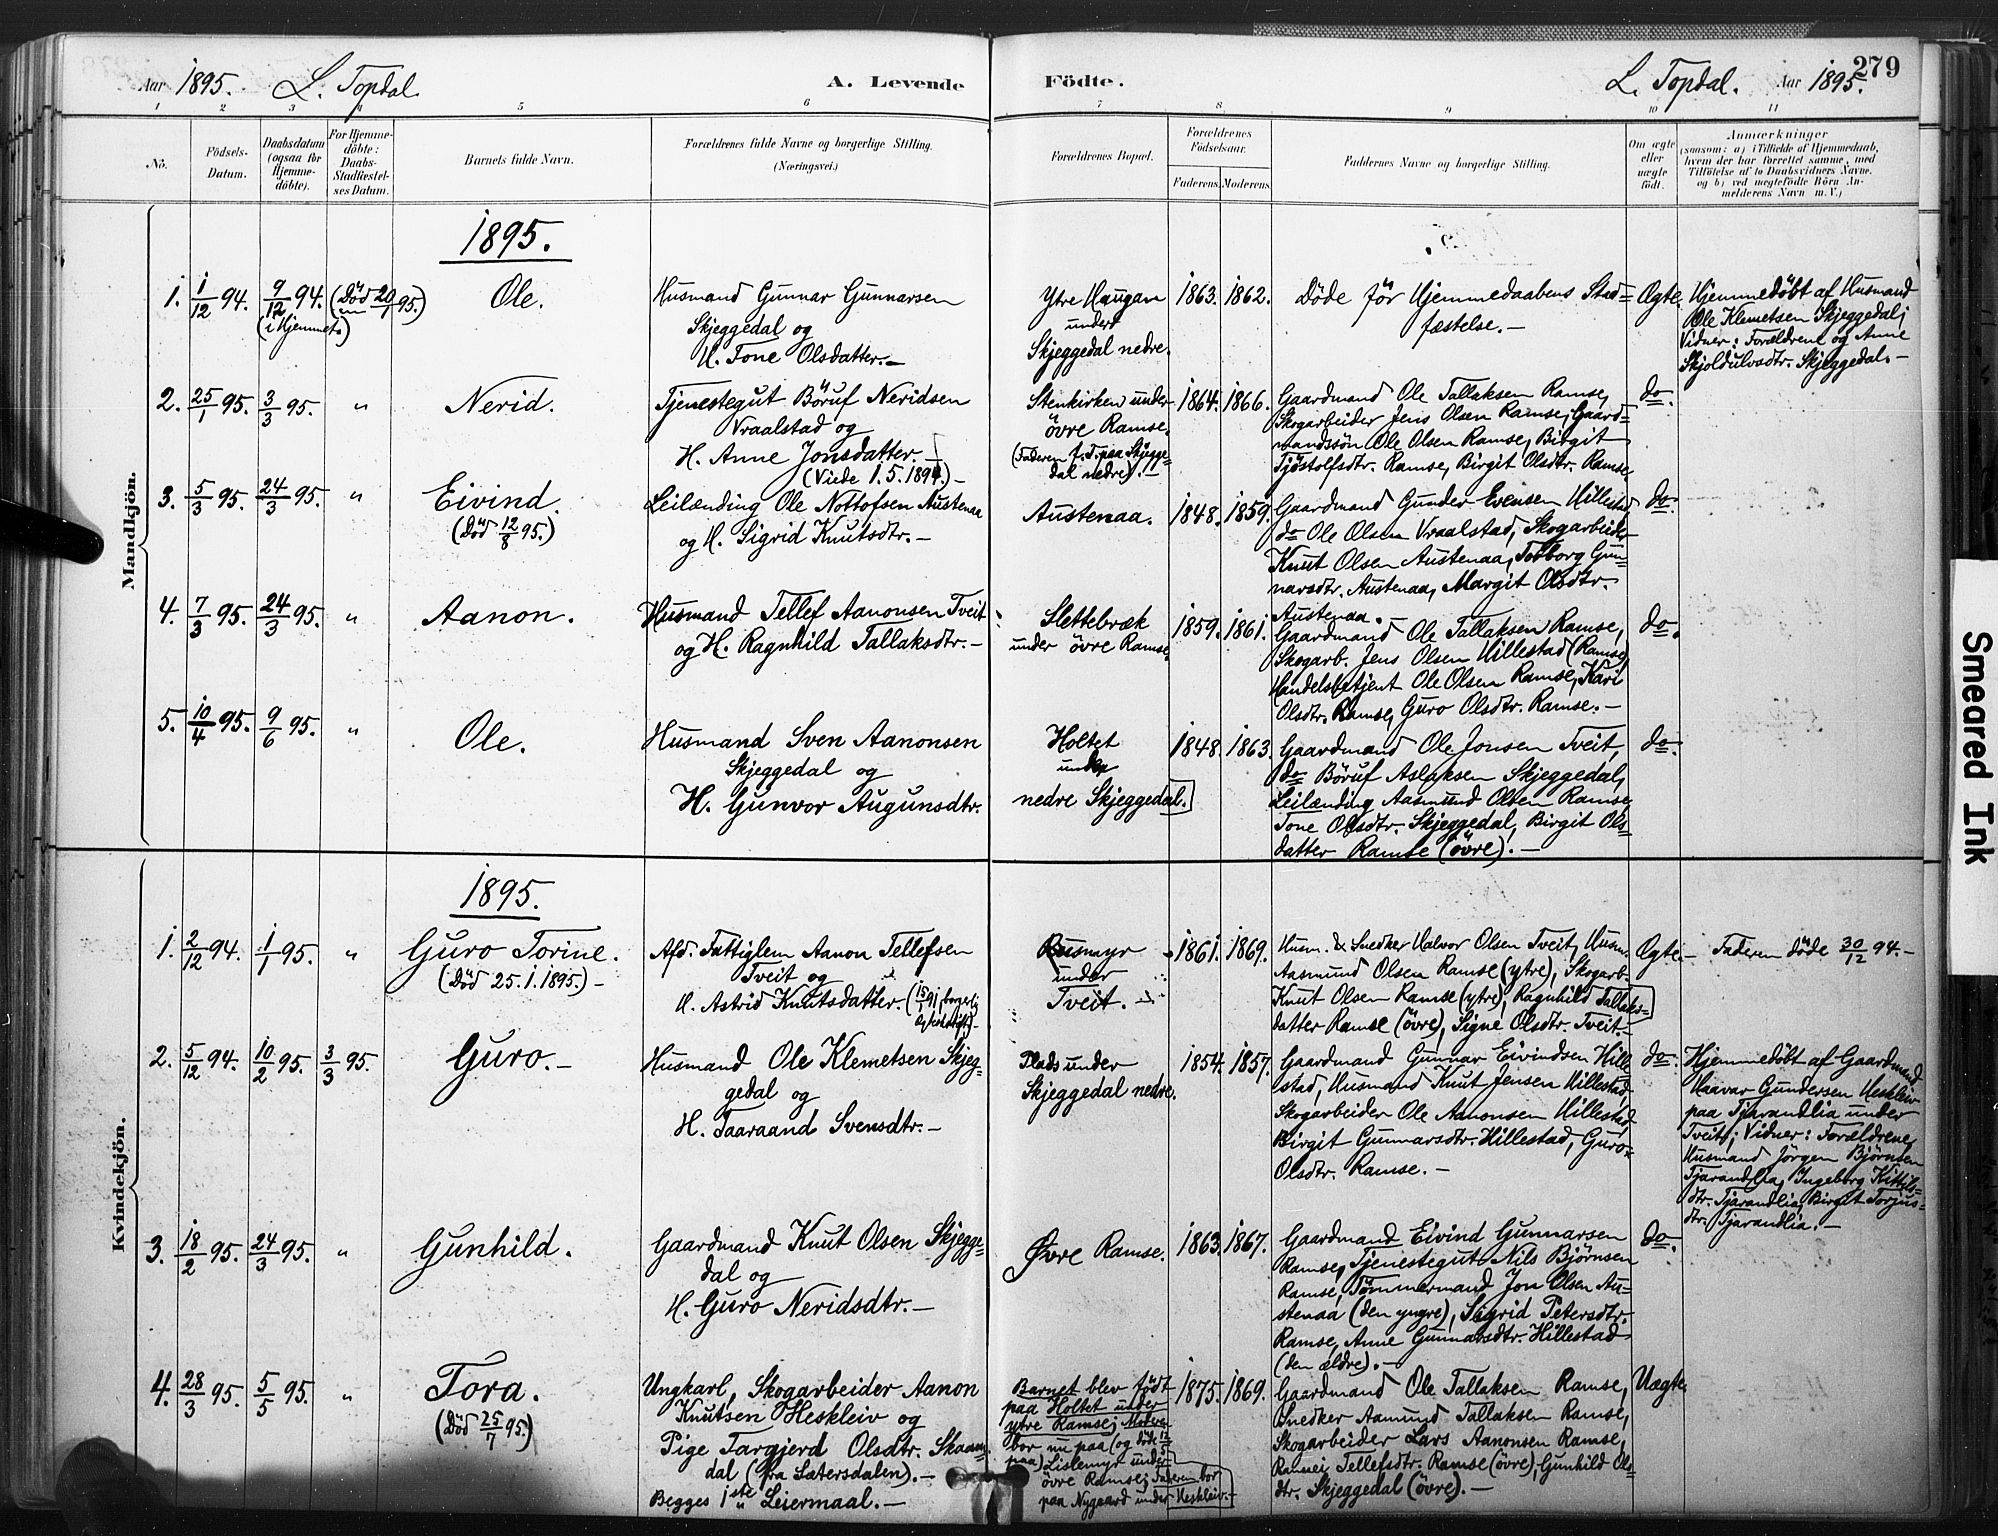 Aar 1895. L. Topdal
A. Levende
Födte.
L. Topdal. Aar 1895.
279
1 2 3 4 5 6 7 8 9 10 11
No.
Födsels-
Datum.
Daabsdatum
(ogsaa for
Hjemme-
döbte).
For Hjemme-
döbte:
Daabs-
Stadfæstel-
ses Datum.
Barnets fulde Navn.
Forældrenes fulde Navne og borgerlige Stilling.
(Næringsvei.)
Forældrenes Bopæl.
Forældrenes
Födselsaar.
Faderens. Moderens.
Faddernes Navne og borgerlige Stilling.
Om ægte
eller
uægte
födt.
Anmærkninger
(saasom: a) i Tilfælde af Hjemmedaab,
hvem der har forrettet samme, med
Tilföielse af to Daabsvidners Navne.
og b) ved uægtefödte Börn An-
melderens Navn m. V.)
Mandkjön.
1895.
1. 1/12 94. 9/12 94. (Död 20/1 95)
(i Hjemmet)
Ole.
Husmand Gunnar Gunnarsen
Skjeggedal og
H. Tone Olsdatter.—
Ytre Haugan
under
Skjeggedal nedre.
1863. 1862.
Döde för Hjemmedaabens Stad=
fæstelse.—
Ægte.
Hjemmedöbt af Husmand
Ole Klemetsen Skjeggedal;
Vidner: Forældrene og Anne
Skjoldulvsdtr. Skjeggedal.—
2. 25/1 95. 3/3 95. "
Nerid.
Tjenestegut Böruf Neridsen
Vraalstad og
H. Anne Jonsdatter.—
(Viede 1.5.1894.)—
Stenkirken under
övre Ramse.
(Faderen f. T. paa Skjegge-
dal nedre).—
1864. 1866.
Gaardmand Ole Tallaksen Ramse,
Skogarbeider Jens Olsen Ramse, Gaard=
mandssön Ole Olsen Ramse, Birgit
Tjöstolfsdtr. Ramse, Birgit Olsdtr. Ramse.
do.
3. 5/3 95. 24/3 95. "
Eivind.
(Död 12/8 95.)
Leilænding Ole Nottofsen Austenaa
og H. Sigrid Knutsdtr.—
Austenaa.
1848. 1859.
Gaardmand Gunder Evensen Hillestad,
do Ole Olsen Vraalstad, Skogarbeider
Knut Olsen Austenaa, Torborg Gun-
narsdtr. Austenaa, Margit Olsdtr.
Austenaa.—
do.
4. 7/3 95. 24/3 95. "
Aanon.
Husmand Tellef Aanonsen Tveit
og H. Ragnhild Tallaksdtr.—
Slettebræk
under övre Ramse.
1859. 1861.
Gaardmand Ole Tallaksen Ramse,
Skogarb. Jens Olsen Hillestad (Ramse)
Handelsbetjent Ole Olsen Ramse, Kari
Olsdtr. Ramse, Guro Olsdtr. Ramse.—
do.
5. 10/4 95. 9/6 95. "
Ole.
Husmand Sven Aanonsen
Skjeggedal og
H. Gunvor Augunsdtr.
Holtet
under
nedre Skjeggedal.
1848. 1863.
Gaardmand Ole Jonsen Tveit,
do Böruf Aslaksen Skjeggedal,
Leilænding Aasmund Olsen Ramse
Tone Olsdtr. Skjeggedal, Birgit Ols-
datter Ramse (övre).—
do.
Kvindekjön.
1895.
1. 2/12 94. 1/1 95. "
Guro Torine.
(Död 25.1.1895.)—
Afd. Fattiglem Aanon Tellefsen
Tveit og
H. Astrid Knutsdatter. (15/7 91 borgerl.
Ægteskstift.)—
under
Tveit.
1861. 1869.
Husm. & Snedker Halvor Olsen Tveit, Husm.
Aasmund Olsen Ramse (ytre), Skogarb.
Knut Olsen Ramse (ytre), Ragnhild Tallaks-
datter Ramse (övre), Signe Olsdtr. Tveit.—
Ægte.—
Faderen döde 30/12 94.—
2. 5/12 94. 10/2 95. 3/3 95.
Guro.—
Husmand Ole Klemetsen Skjeg-
gedal og
H. Taaraand Svensdtr.—
Plads under
Skjeggedal nedre.
1854. 1857.
Gaardmand Gunnar Eivindsen Hille-
stad, Husmand Knut Jensen Hillestad,
Skogarbeider Ole Aanonsen Hillestad
Birgit Gunnarsdtr. Hillestad, Guro
Olsdtr. Ramse.—
do.
Hjemmedöbt af Gaardmand
Haavar Gundersen Heskleiv
paa Tjarandlia under
Tveit; Vidner: Forældrene,
Husmand Jörgen Björnsen
Tjarandlia, Ingeborg Kittils-
dtr. Tjarandlia, Birgit Torjus-
dtr. Tjarandlia.—
3. 18/2 95. 24/3 95. "
Gunhild.
Gaardmand Knut Olsen Skjegge=
dal og
H. Guro Neridsdtr.—
Øvre Ramse.
1863. 1867.
Gaardmand Eivind Gunnarsen
Ramse, Tjenestegut Nils Björnsen
Ramse, Tömmermand Jon Olsen Au-
stenaa (den yngre), Sigrid Petersdtr.
Ramse, Anne Gunnarsdtr. Hillestad
(den ældre).—
do.
4. 28/3 95. 5/5 95. "
Tora.
(Död 25/7 95.)
Ungkarl, Skogarbeider Aanon
Knutsen Heskleiv og
Pige Targjerd Olsdtr. Skaam-
dal (fra Sætersdalen).—
Begges 1ste Leiermaal.—
Barnet blev födt
paa Holtet under
ytre Ramse; Moderen
bor nu paa (og döde 12/5
paa) Lislemyr under
övre Ramse; Faderen bor
paa Nygaard under Heskleiv.—
1875. 1869.
Gaardmand Ole Tallaksen Ramse,
Snedker Aamund Tallaksen Ramse,
Skogarbeider Lars Aanonsen Ramse,
Rannei Tellefsdtr. Ramse (övre), Gunhild Ols-
dtr. Skjeggedal (övre).—
Uægte.
Smeared Ink